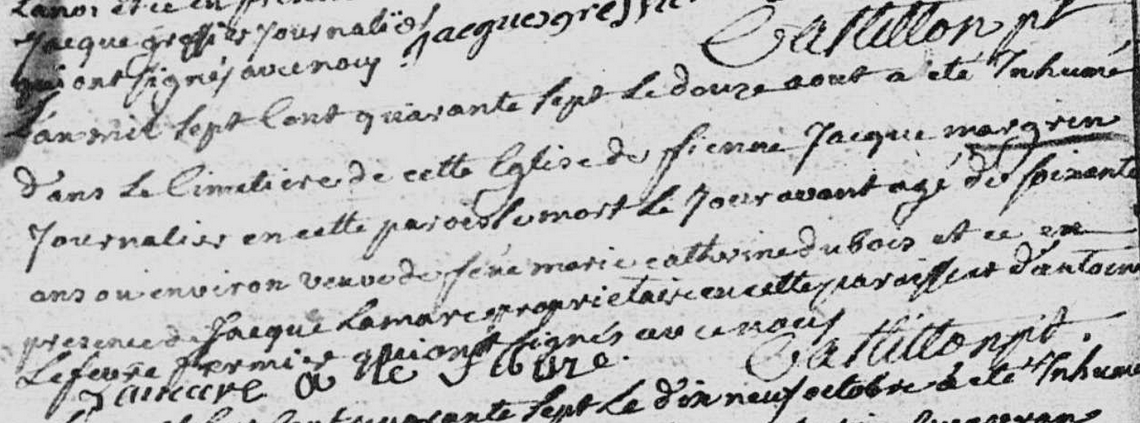 Jacque gressier Journalier Jacques gressier
qui ont signés avec nous Catillon pt
L'an mil sept Cent quarante sept Le douze aout a eté Inhumé
d'ans Le Cimetiere de cette Eglise de fienne Jacque margren
Journalier en cette paroisse mort Le Jour avant agé de soixante
ans ou environ veuve de feue marie catherine dubois et ce en
presence de Jacque Lamare proprietaire en cette paroisse et d'antoine
Lefevre fermier qui ont signés avec nous Catillon pt.
a le febure
sept Le dix neuf octobre a eté Inhumé